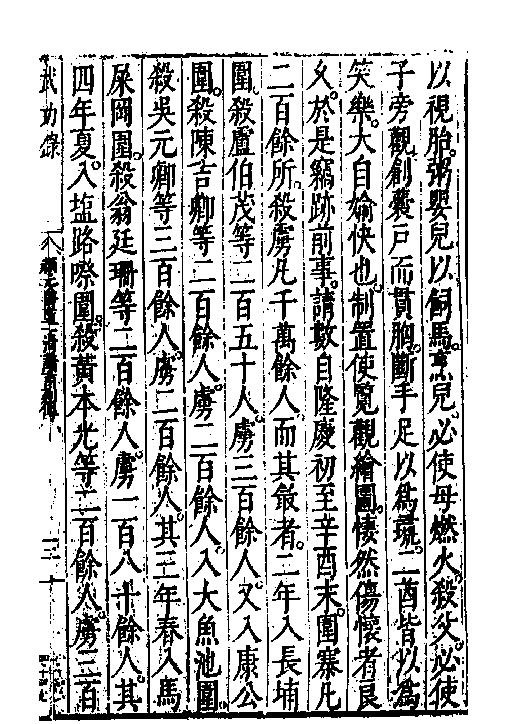 以視胎。粥嬰兒以飼馬。烹兒。必使母燃火。殺父。必使
子旁觀。創囊戶而貫胸。斷手足以為琉。二酋皆以為
笑樂。大自媮快也。制置使覧觀繪圖。悽然傷懷者良
久。於是竊跡前事。請數自隆慶初至辛酉末。圍寨凡
二百餘所。殺虜凡千萬餘人。而其最者。二年入長埔
圍。殺盧伯茂等二百五十人。虜三百餘人。又入康公
圍。殺陳吉卿等二百餘人。虜二百餘人。入大魚池圍。
殺吳元卿等三百餘人。虜二百餘人。其三年春。入馬
屎岡圍。殺翁廷珊等二百餘人。虜一百八十餘人。其
四年夏。入塩路嘹圍。殺黃本光等二百餘人。虜三百
武功錄
三十